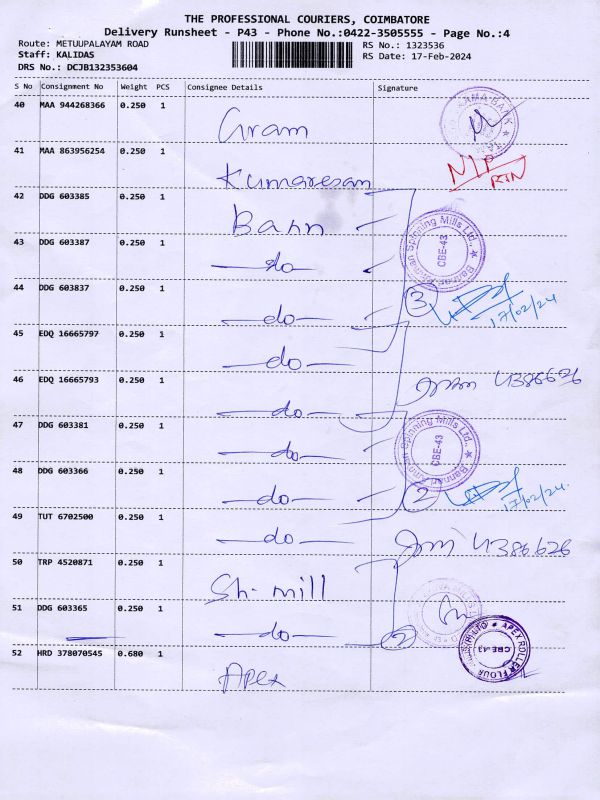 THE PROFESSIONAL COURIERS, COIMBATORE
Delivery Runsheet - P43 - Phone No.:0422-3505555 - Page No.:4
Route: METUUPALAYAM ROAD
RS No.: 1323536
Staff: KALIDAS
RS Date: 17-Feb-2024
DRS No.: DCJB132353604
S No Consignment No Weight PCS Consignee Details Signature
40 MAA 944268366 0.250 1
Gram
41 MAA 863956254 0.250 1
N/P
RTN
Kumaresan
42 DDG 603385 0.250 1
Bann
43 DDG 603387 0.250 1
Bannari Amman Spinning Mills Ltd., CBE-43
—do—
44 DDG 603837 0.250 1
3
—do— 17/02/24
45 EDQ 16665797 0.250 1
—do—
46 EDQ 16665793 0.250 1
4386626
—do—
47 DDG 603381 0.250 1
Bannari Amman Spinning Mills Ltd., CBE-43
—do—
48 DDG 603366 0.250 1
—do— 2 17/02/24.
49 TUT 6702500 0.250 1
—do— 4386626
50 TRP 4520871 0.250 1
Sh. mill
51 DDG 603365 0.250 1
—do— 2
52 HRD 378070545 0.680 1
APEX ROLLER FLOUR CBE-43
Apex